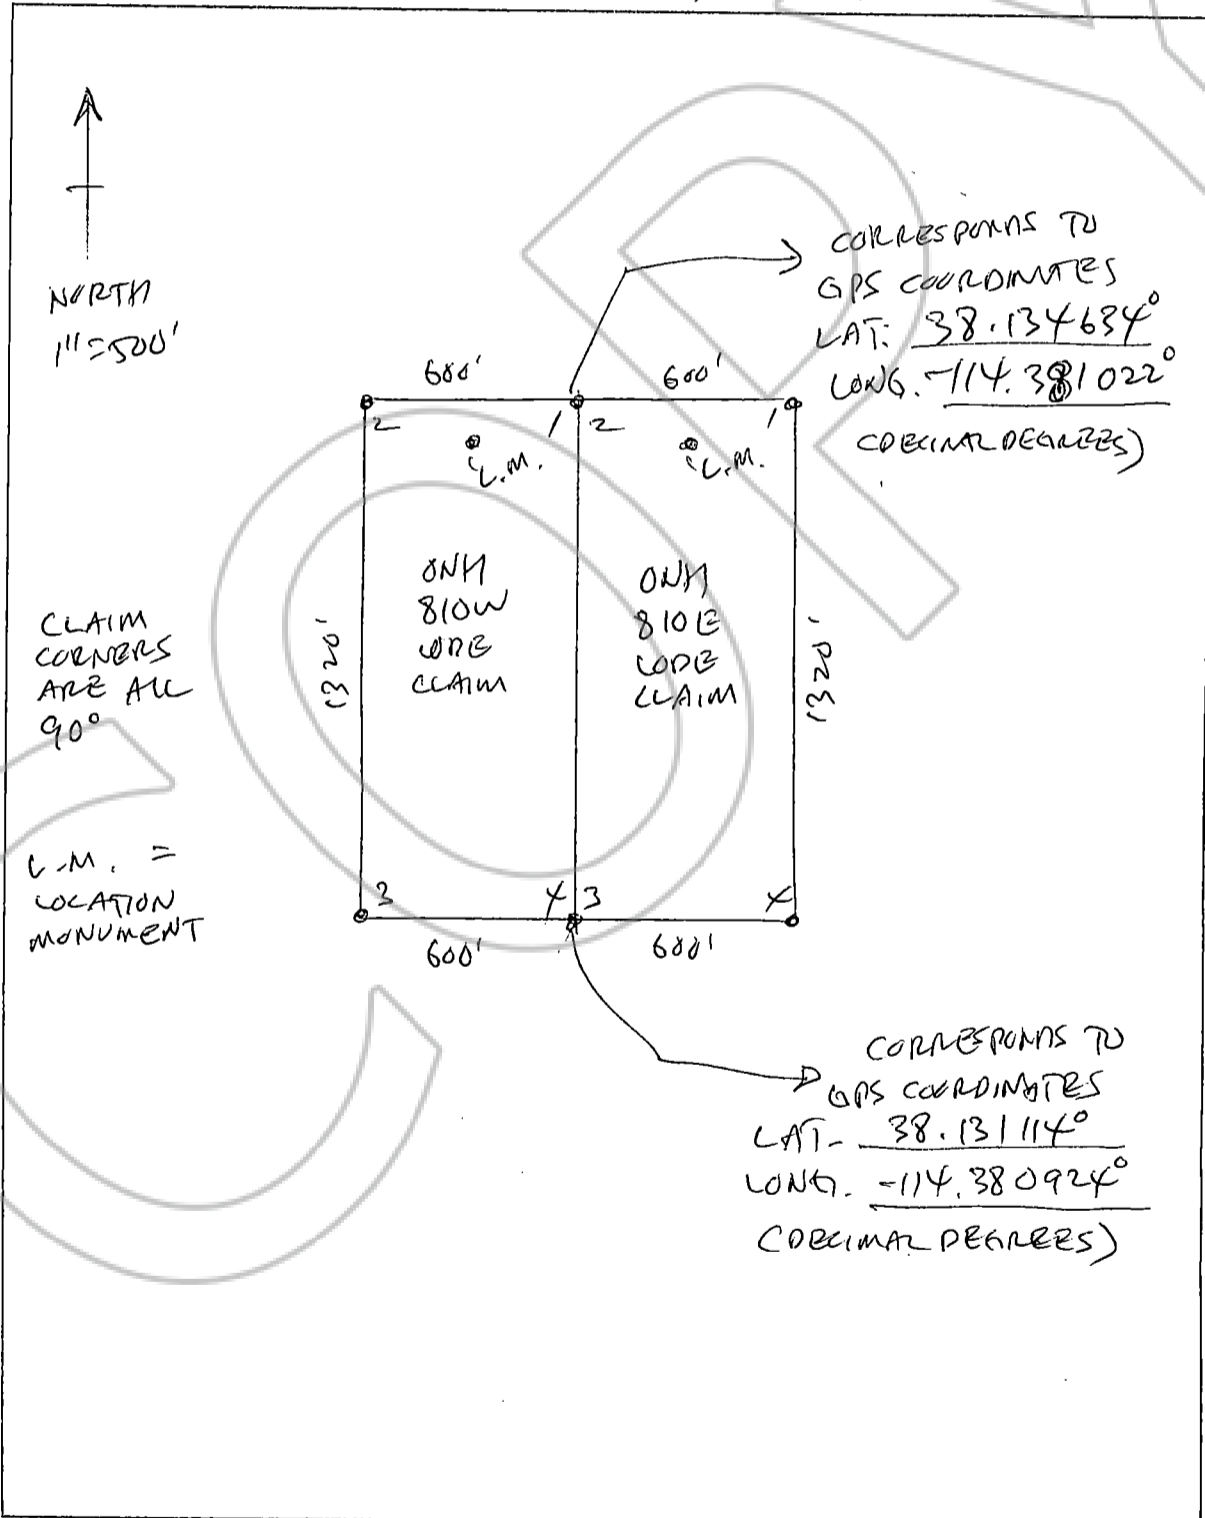 NORTH
1"=500'
CORRESPONDS TO
GPS COORDINATES
LAT: 38.134634°
LONG. -114.381022°
(DECIMAL DEGREES)
600'
600'
2
1
2
1
L.M.
L.M.
ONH
810W
LODE
CLAIM
ONH
810E
LODE
CLAIM
1320'
1320'
CLAIM
CORNERS
ARE ALL
90°
L.M. =
LOCATION
MONUMENT
3
4
3
4
600'
600'
CORRESPONDS TO
GPS COORDINATES
LAT- 38.131114°
LONG. -114.380924°
(DECIMAL DEGREES)
COP